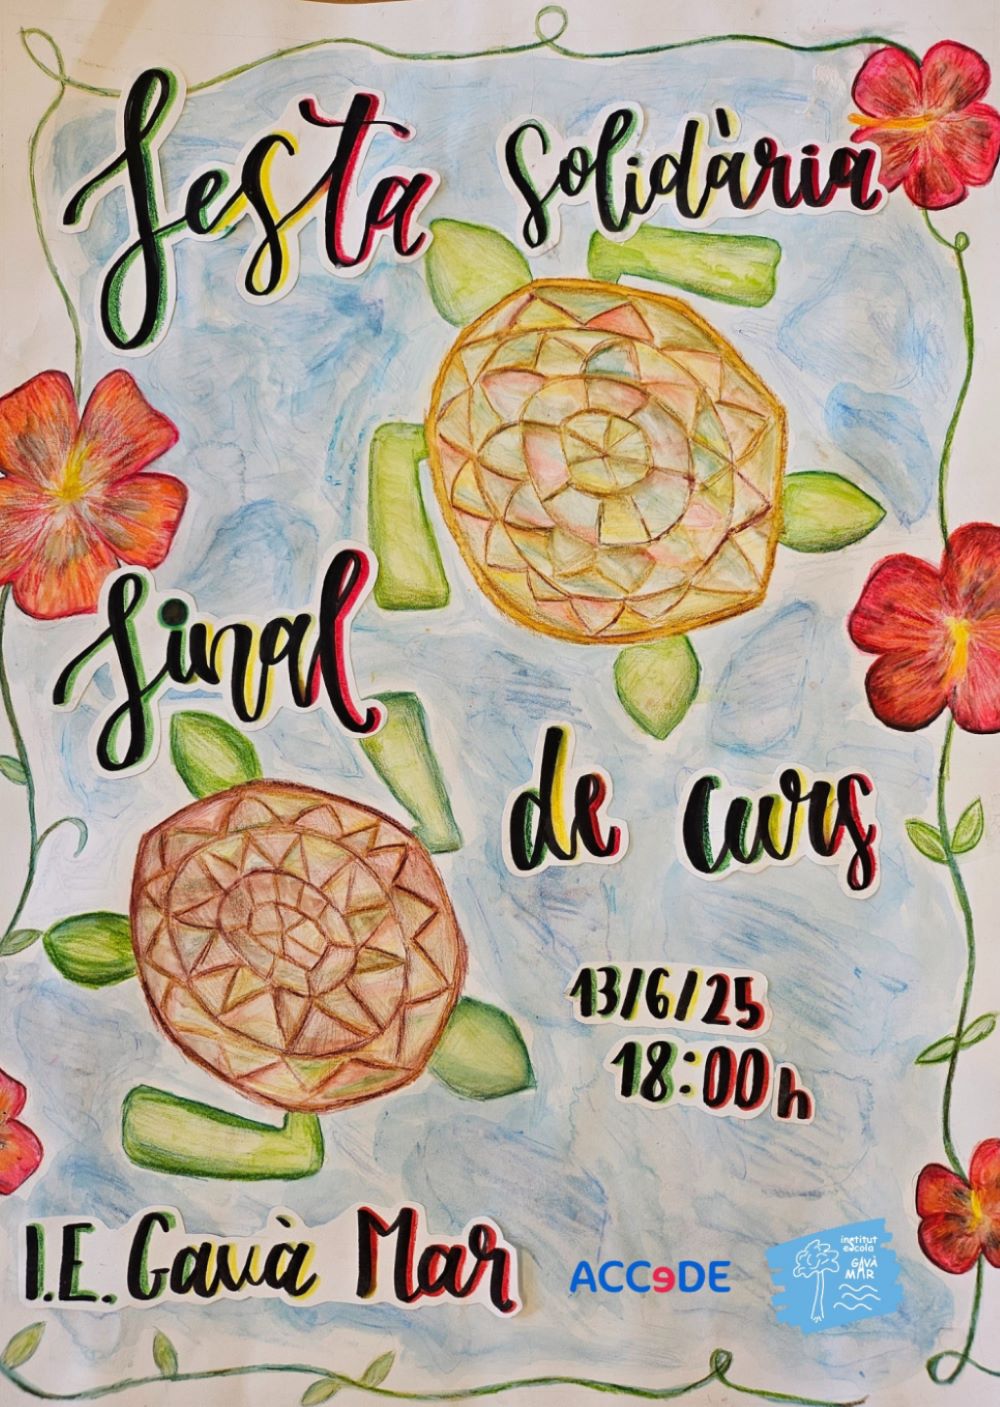 festa solidària
final
de curs
13/6/25
18:00h
I.E. Gavà Mar
ACCeDE
institut
escola
GAVÀ
MAR